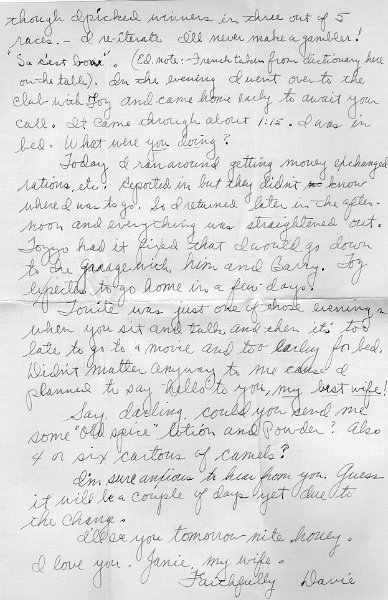 though I picked winners in three out of 5
races. - I re-iterate I'll never make a gambler!
"Sa s'est bone". (Ed. note: - French taken from dictionary here
on the table). In the evening I went over to the
club with Foz and came home early to await your
call. It came through about 1:15. I was in
bed. What were you doing?
Today I ran around getting money exchanged
rations, etc. Reported in but they didn't know
where I was to go. So I returned later in the after-
noon and everything was straightened out.
had it fixed that I would go down
to the garage with him and Barry. Foz
expects to go home in a few days.
Tonite was just one of those evenings
when you sit and talk and then it's too
late to go to a movie and too early for bed.
Didn't matter anyway to me cause I
planned to say hello to you, my best wife!
Say, darling, could you send me
some "Old Spice" lotion and Powder? Also
4 or six cartons of camels?
I'm sure anxious to hear from you. Guess
it will be a couple of days yet due to
the change.
I'll see you tomorrow nite, honey.
I love you. Janie, my wife.
Faithfully Davie